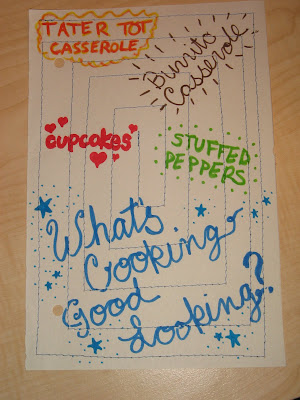 TATER TOT
CASSEROLE
Burrito
Casserole
cupcakes
STUFFED
PEPPERS
What's
Cooking
Good
Looking?